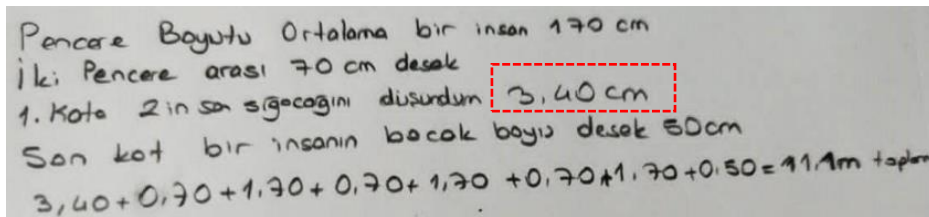 Pencere Boyutu Ortalama bir insan 170 cm
İki Pencere arası 70 cm desek
1. Kata 2 insan sığacağını düşündüm 3,40 cm
Son kat bir insanın bacak boyu desek 50cm
3,40+0,70+1,70+0,70+1,70+0,70+1.70+0.50=11.1m toplam